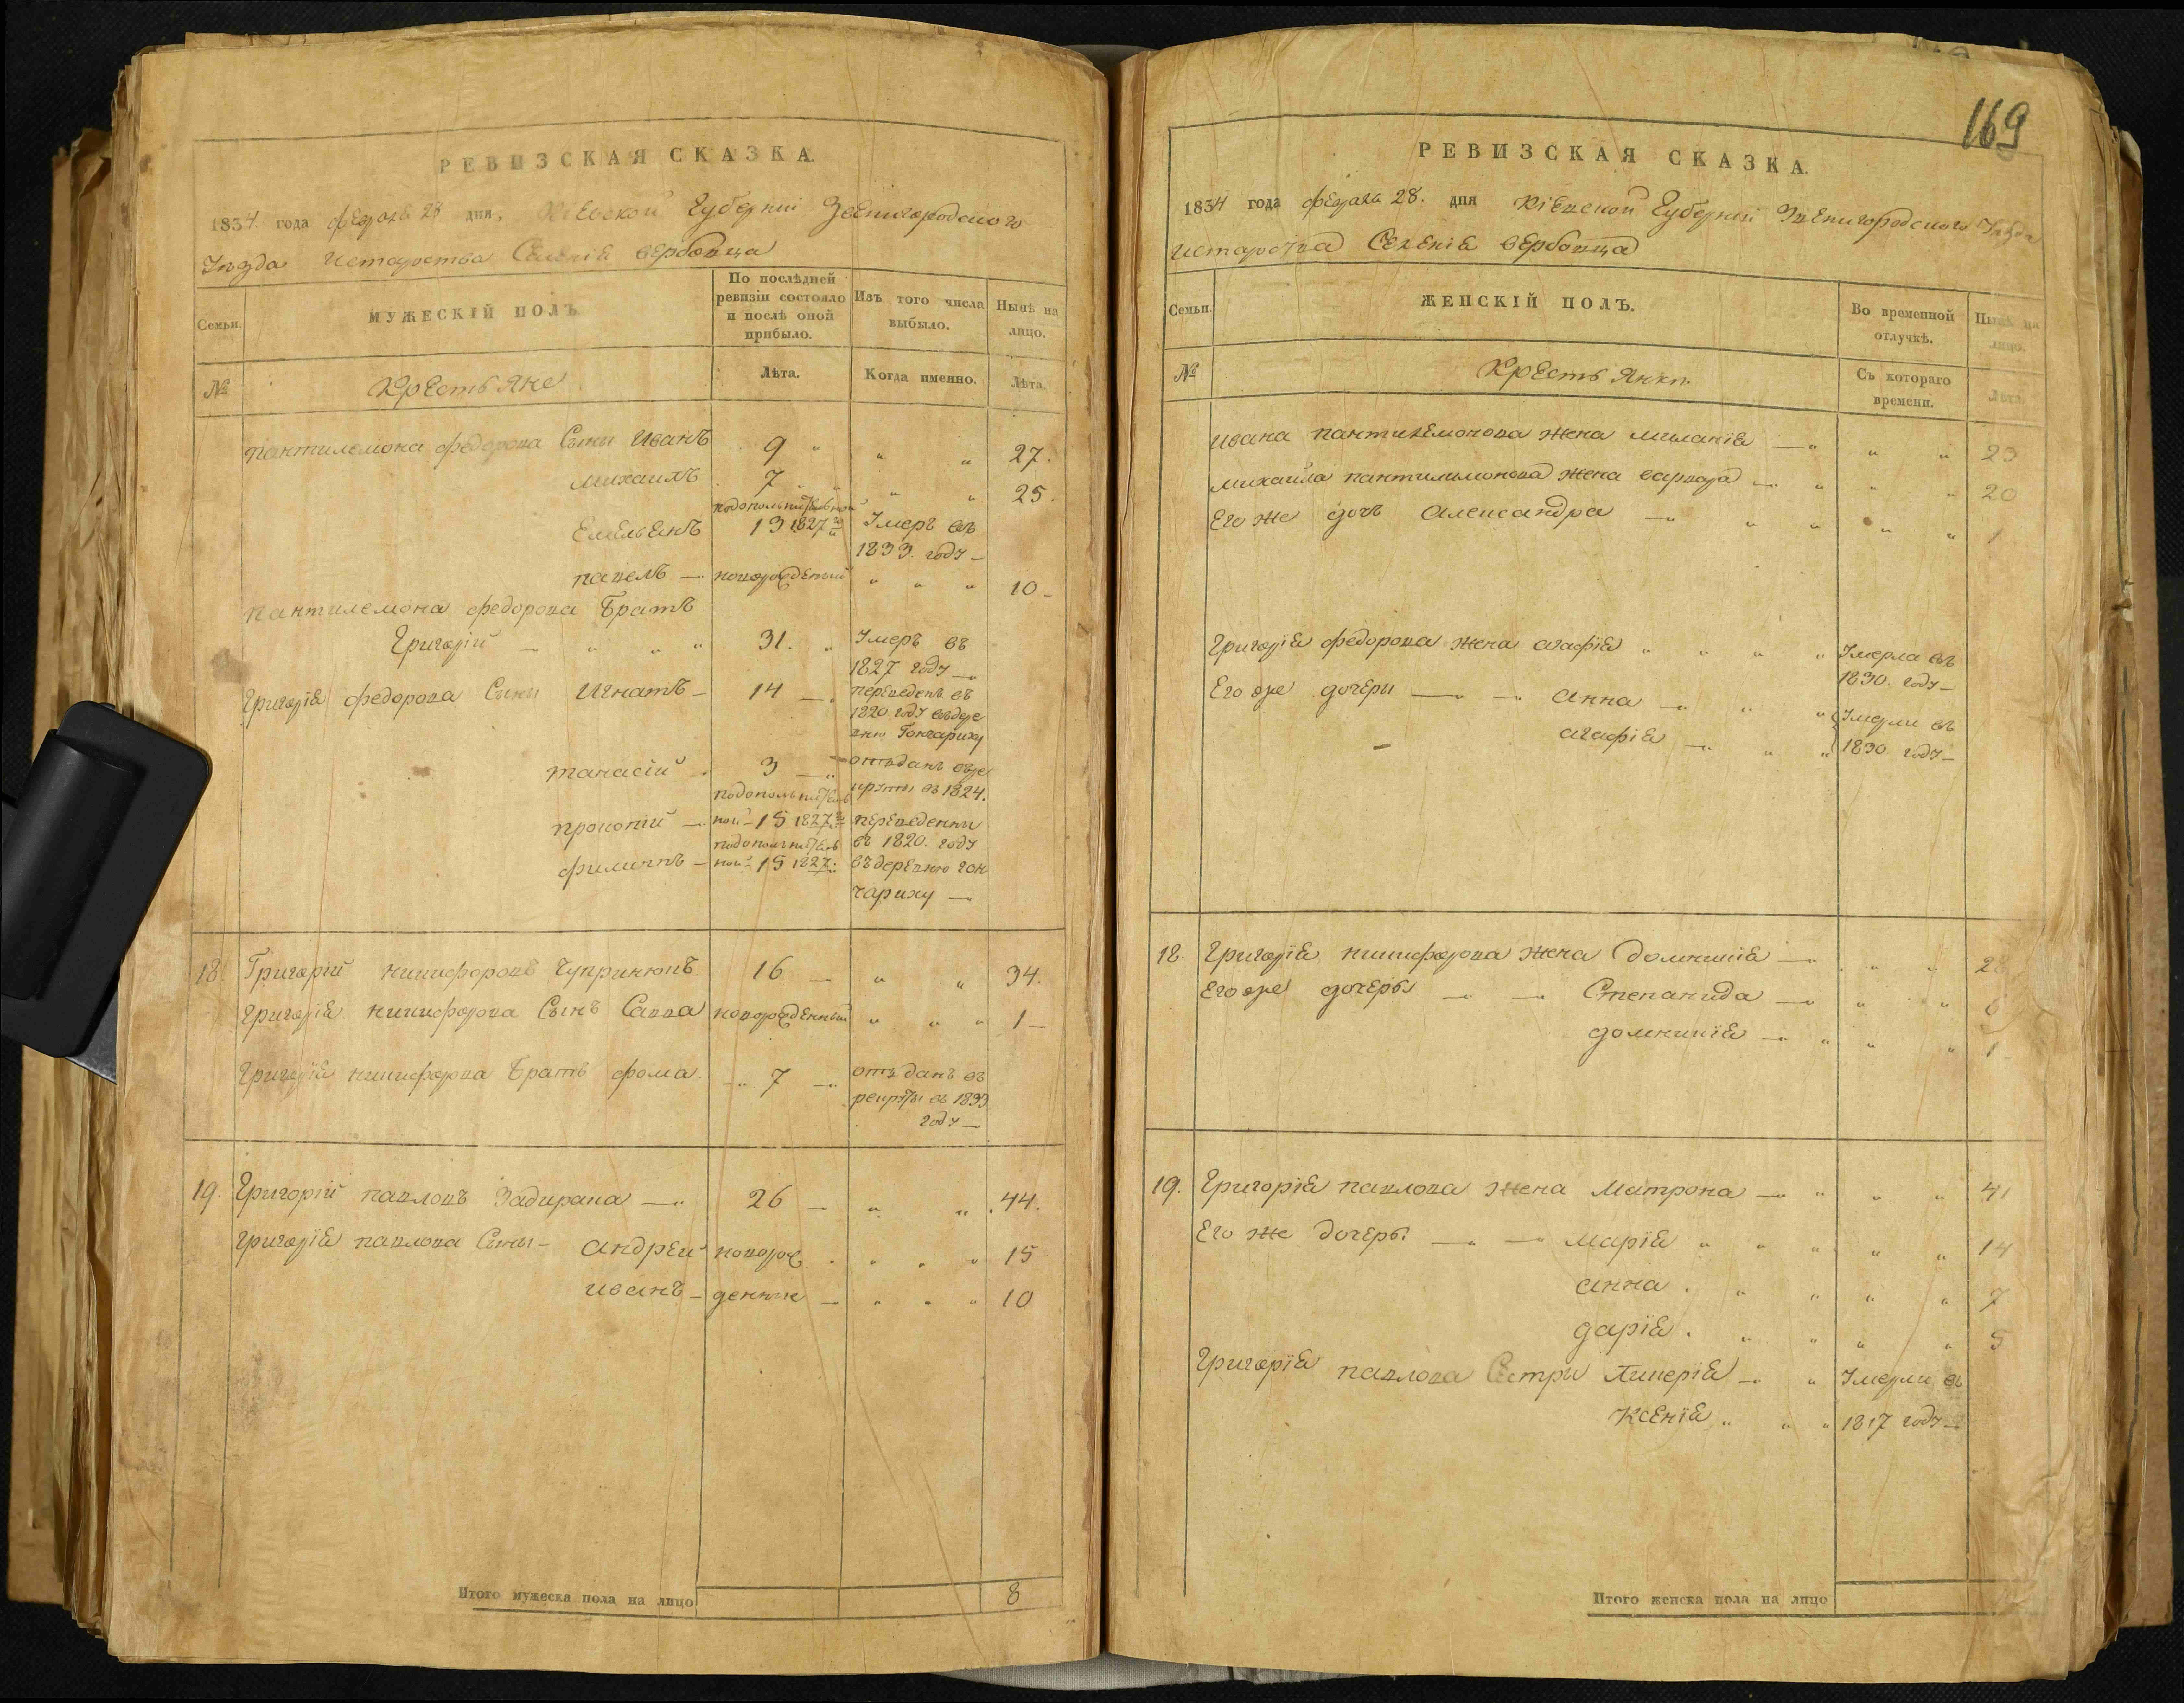 РЕВИЗСКАЯ СКАЗКА.
1834 года февраля 28 дня, Кіевской Губерніи Звенигородского
Уезда Истароства Селенія вербовца
Семьи.
МУЖЕСКІЙ ПОЛЪ
По послѣдней ревизіи состояло и послѣ оной прибыло.
Изъ того числа выбыло.
Нынѣ на лицо.
№
Крестьяне
Лѣта.
Когда именно.
Лѣта.
пантилемона федорова Сыны Иванъ 9 „ „ „ 27.
михаилъ 7 „ „ „ „ 25.
Емельенъ 13 1827 Умеръ въ
1833. году
павелъ — новорожденый „ „ „ 10
пантилемона федорова Братъ
Григорій — „ „ „ 31. „ Умеръ въ
1827 году
Григорія федорова Сыны Игнатъ — 14 — переведенъ въ
1820 году въ дере
вню Гончариху
танасій 3 — отъданъ въ ре
круты въ 1824.
прокопій — 15 1827 переведенны
въ 1820. году
филиппъ — 15 1827. въ деревню гон
чариху —
18 Григорій никифоровъ Чупринюпъ 16 — „ „ 34.
Григорія никифорова Сынъ Савва новорожденный „ „ „ 1
Григорія никифорова Братъ фома. 7 — отъданъ въ
рекруты въ 1833
году —
19. Григорій павловъ Задирака — 26 — „ „ 44.
Григорія павлова Сыны — андрей новорож „ „ „ 15
иванъ — денные — „ „ „ 10
Итого мужеска пола на лицо 8
169
РЕВИЗСКАЯ СКАЗКА.
1834 года февраля 28. дня Кіевской Губерніи Звенигородского Уезда
Истароства Селенія вербовца
Семьи.
ЖЕНСКІЙ ПОЛЪ.
Во временной отлучкѣ.
Нынѣ на лицо.
№
Крестьянки.
Съ котораго времени.
Лѣта.
Ивана пантилемонова жена миланія — „ „ „ 23
михайла пантилимонова жена варвара — „ „ „ 20
Его же дочъ александра — „ „ „ „ 1
Григорія федорова жена агафія „ „ „ „ Умерла въ
1830. году —
Его же дочеры — — анна — „ „ Умерли въ
агафія — „ „ 1830 году —
18. Григорія никифорова жена Домникія — „ „ 28
Его же дочеры — — Степанида — „ „ 6
домникія — „ „ „ 1
19. Григорія павлова жена Матрона — „ „ „ 41
Его же дочеры — — марія „ „ „ „ „ 14
анна . „ „ „ „ 7
дарія . „ „ „ „ 5
Григорія павлова Сестры Гликерія — „ Умерли въ
Ксенія „ „ „ 1817 году —
Итого женска пола на лицо